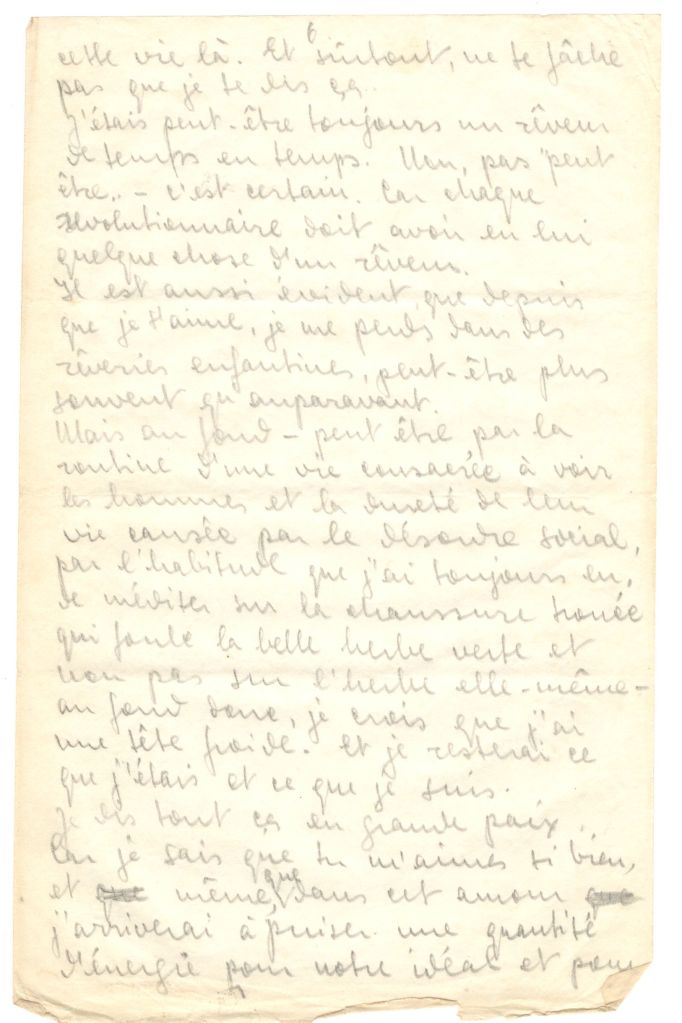 6
cette vie là. Et surtout, ne te fâche
pas que je te dis ça.
J'étais peut-être toujours un rêveur
de temps en temps. Non, pas "peut
être" - c'est certain. Car chaque
révolutionnaire doit avoir en lui
quelque chose d'un rêveur.
Il est aussi évident, que depuis
que je t'aime, je me perds dans des
rêveries enfantines, peut-être plus
souvent qu'auparavant.
Mais au fond - peut être par la
routine d'une vie consacrée à voir
les hommes et la dureté de leur
vie causée par le désordre social,
par l'habitude que j'ai toujours eu,
de méditer sur la chaussure trouée
qui foule la belle herbe verte et
non pas sur l'herbe elle-même -
au fond donc, je crois que j'ai
une tête froide. Et je resterai ce
que j'étais et ce que je suis.
Je dis tout ça en grande paix..
Car je sais que tu m'aimes si bien,
et même que dans cet amour
j'arriverai à puiser une quantité
d'énergie pour notre idéal et pour